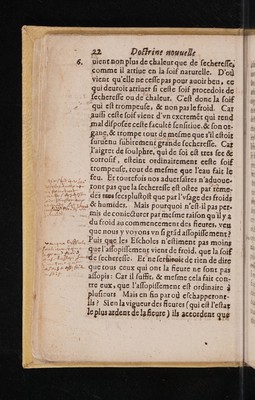 22 Doctrine nouuelle
6. uient non plus de chaleur que de secheresse,
comme il arriue en la soif naturelle. D'où
vient qu'elle ne cesse pas pour auoir beu, ce
qui deuroit arriuer si ceste soif procedoit de
secheresse ou de chaleur. C'est donc la soif
qui est trompeuse, & non pas le froid. Car
aussi ceste soif vient d'vn excrement qui rend
mal disposee ceste faculté sensitiue, & son or-
gane, & trompe tout de mesme que s'il estoit
suruenu subitement grande secheresse. Car
l'aigret de soulphre, qui de soi est tres sec &
corrosif, esteint ordinairement ceste soif
trompeuse, tout de mesme que l'eau fait le
feu. Et toutesfois nos aduersaires n'aduoue-
ront pas que la secheresse est ostee par reme-
des secs plustost que par l'vsage des froids
& humides. Mais pourquoi n'est-il pas per-
mis de coniecturer par mesme raison qu'il y a
du froid au commencement des fieures, veu
que nous y voyons vn si grãd assopissement?
Puis que les Escholes n'estiment pas moins
que l'assopissement vient de froid, que la soif
de secheresse. Et ne seruiroit de rien de dire
que tous ceux qui ont la fieure ne sont pas
assopis: Car il suffit, & mesme cela fait con-
tre eux, que l'assopissement est ordinaire à
plusieurs. Mais en fin par où eschapperont-
ils? Si en la vigueur des fieures (qui est l'estat
le plus ardent de la fieure) ils accordent que